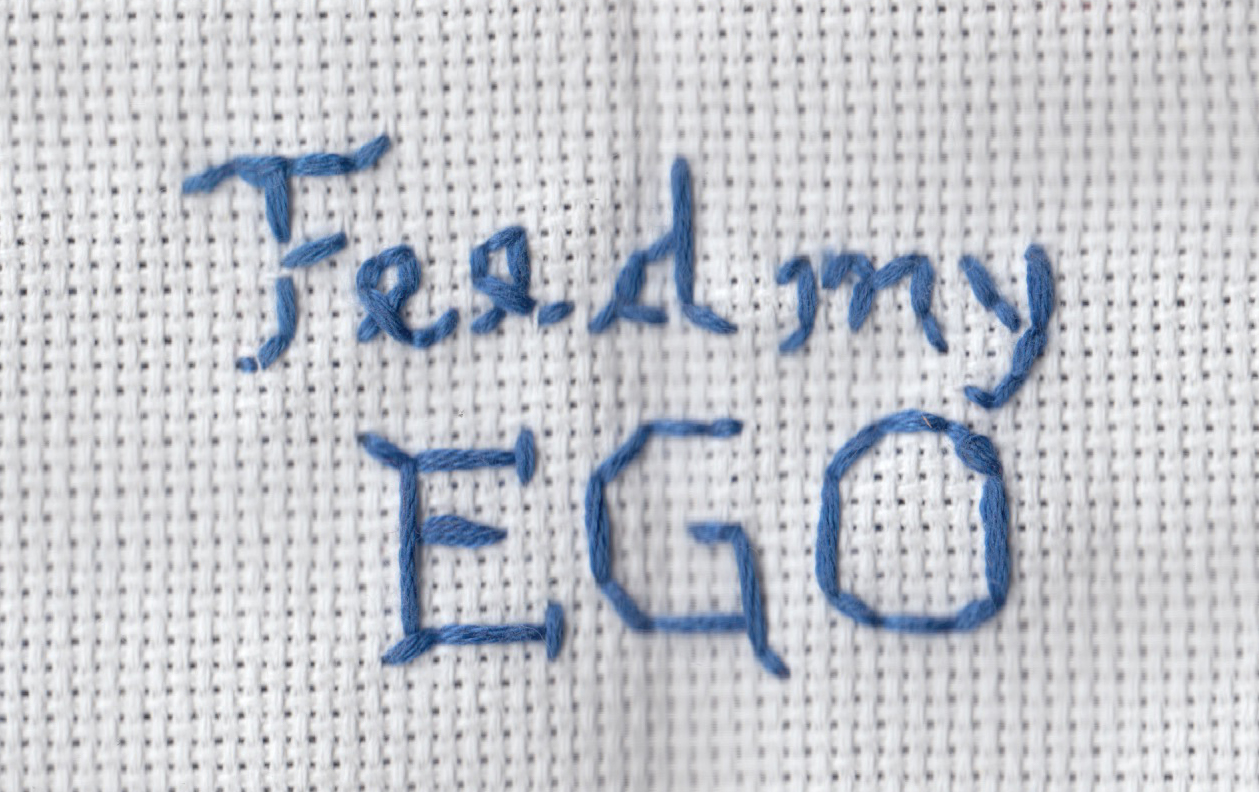 Feed my
EGO